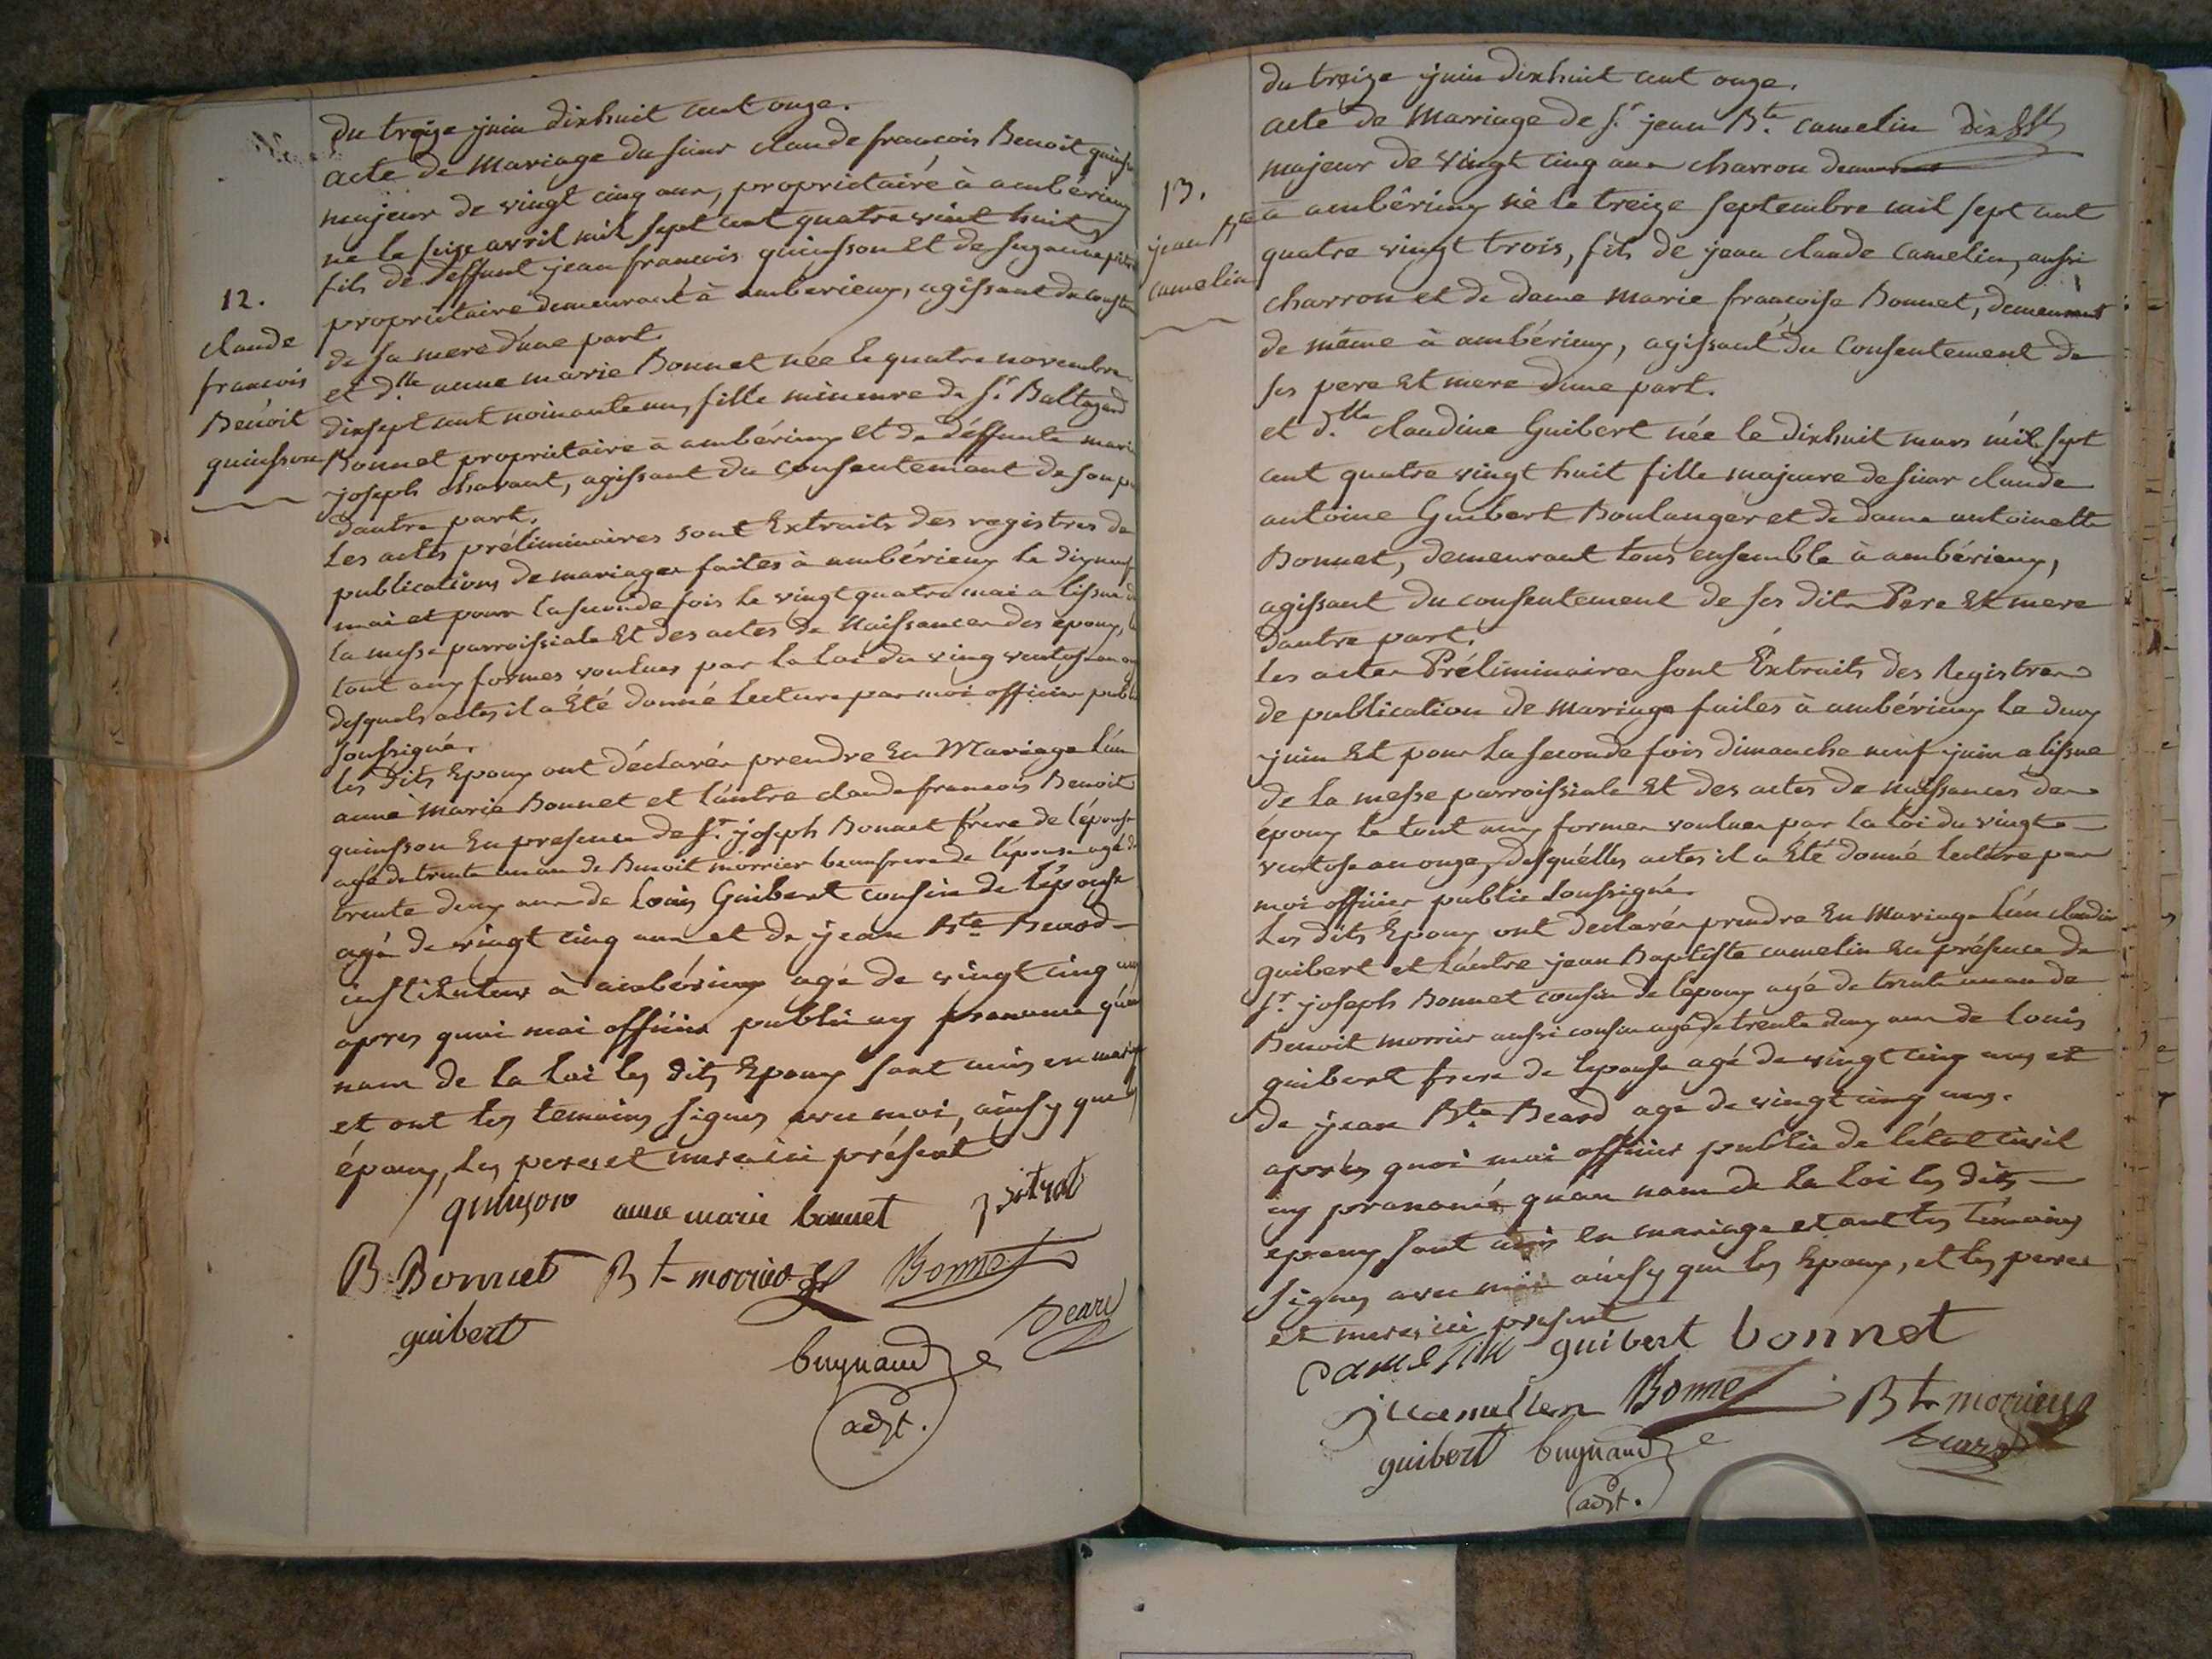 du treize juin dixhuit cent onze.
acte de Mariage du sieur claude francois Benoit
majeur de vingt cinq ans, propriétaire à ambérieux
né le seize avril mil sept cent quatre vint huit
fils de deffunt jean francois quinsson et de suzanne
propriétaire demeurant à ambérieux, agissant du
de sa mere d'une part.
et d.lle anne marie Bonnet née le quatre novembre
dixsept cent nonante un, fille mineure de s.r Baltazard
Bonnet propriétaire à ambérieux et de déffunte
joseph chavant, agissant du consentement de son
d'autre part.
les actes préliminaires sont Extraits des registres de
publications de mariages faites à ambérieux le
mai et pour la seconde fois le vingt quatre mai a l'issue
la messe parroissiale Et des actes de Naissances des epoux,
tout aux formes voulues par la loi du ving ventose an
desquels actes il a Eté donné Lecture par moi officier
soussigné.
les dits Epoux ont déclarés prendre En Mariage l'un
anne Marie Bonnet et l'autre claude francois Benoit
quinsson En presence de s.r joseph Bonnet frère de l'épouse
agé de trente un an de Benoit morrier beaufrere de l'épouse agé
trente deux ans de Louis Guibert cousin de l'épouse
agé de vingt cinq ans et de jean B.te Beard
instituteur à ambérieux agé de vingt cinq
apres quoi moi officier public ay prononcé
nom de la loi les dits Epoux sont unis en
et ont les temoins signes avec moi, ainsy que
époux, les peres et mere ici présent
quinson anne marie bonnet
B. Bonnet Bt morrier Bonnet
guibert Beard
bugnand
adjt.
12.
claude
francois
Benoit
quinsson
du treize juin dixhuit cent onze.
acte de Mariage de s.r jean B.te camelin
majeur de vingt cinq ans charron
à ambérieux né le treize septembre mil sept cent
quatre vingt trois, fils de jean claude camelin, aussi
charron et de dame marie francoise Bonnet, demeurant
de même à ambérieux, agissant du Consentement de
ses pere Et mere d'une part.
et d.lle claudine Guibert née le dixhuit mars mil sept
cent quatre vingt huit fille majeure de sieur claude
antoine Guibert Boulanger et de dame antoinette
Bonnet, demeurant tous ensemble à ambérieux,
agissant du consentement de ses dits Pere Et mere
d'autre part.
les actes Préliminaires sont Extraits des Registres
de publication de Mariage faites à ambérieux le deux
juin Et pour la seconde fois dimanche neuf juin a l'issue
de la messe parroissiale Et des actes de naissances des
époux le tout aux formes voulues par la loi du vingt
ventose an onze, desquélles actes il a Eté donné lecture par
moi officier public soussigné.
Les dits Epoux ont declarés prendre En Mariage l'un
guibert et l'autre jean Baptiste camelin En présence de
s.r joseph Bonnet cousin de l'époux agé de trente un an de
Benoit morrier aussi cousin agé de trente deux ans de Louis
guibert frere de lepouse agé de vingt cinq ans et
de jean B.te Beard age de vingt cinq ans.
après quoi moi officier public de l'état civil
ay prononcé qu'au nom de la loi les dits
epoux sont unis en mariage et ont les témoins
signes avec moi ainsy que les Epoux, et les peres
et meres ici present
camelin guibert bonnet
Bonnet Bt morrier
guibert bugnand Beard
adjt.
13.
jean Bte
camelin